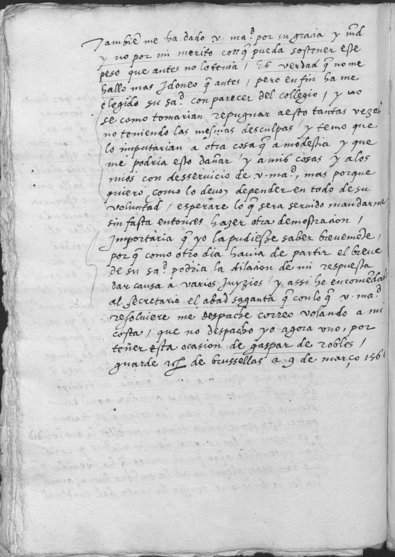 Tambien me ha dado v. mad por su gracia y md
y no por mi merito con q pueda sostener este
peso que antes no lo tenia / Es verdad q no me
hallo mas Idoneo q antes / pero en fin ha me
elegido su sad con parecer del collegio / y no
se como tomarian repugnar a esto tantas vezes
no teniendo las mesmas desculpas y temo que
lo imputarian a otra cosa q a modestia y que
me podria esto dañar y a mis cosas y a los
mios con desservicio de v. mad mas porque
quiero como lo devo depender en todo de su
voluntad / esperare lo q sera servido mandarme
sin fasta entonces hazer otra demostracion /
Importaria q yo la pudiesse saber brevemente
por q como otro dia havia de partir el breve
de su sad podria la dilacion de mi respuesta
dar causa a varios Juyzios / y assi he encomendado
al secretario el abad saganta q con lo q v. mad
resolviere me despache correo volando a mi
costa / que no despacho yo agora uno, por
tener esta ocasion de gaspar de robles /
guarde de brussellas a 9 de março 156